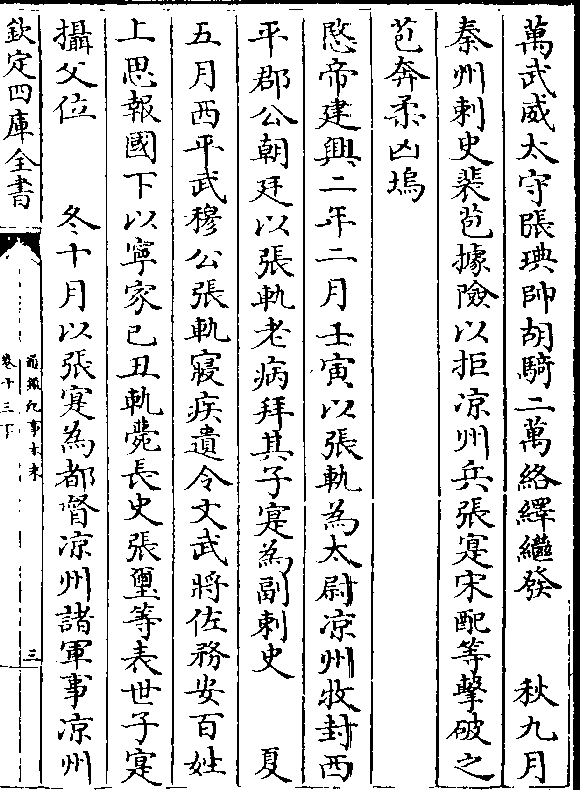 萬武威太守張琠帥胡騎二萬絡繹繼發　秋九月
秦州刺史裴苞據險以拒凉州兵張寔宋配等擊破之
苞奔柔凶塢
愍帝建興二年二月壬寅以張軌為太尉凉州牧封西
平郡公朝廷以張軌老病拜其子寔為副刺史　夏
五月西平武穆公張軌寢疾遺令文武將佐務安百姓
上思報國下以寧家已丑軌薨長史張璽等表世子寔
攝父位　冬十月以張寔為都督凉州諸軍事凉州
欽定四庫全書
通鑑紀事本末
卷十三下
三